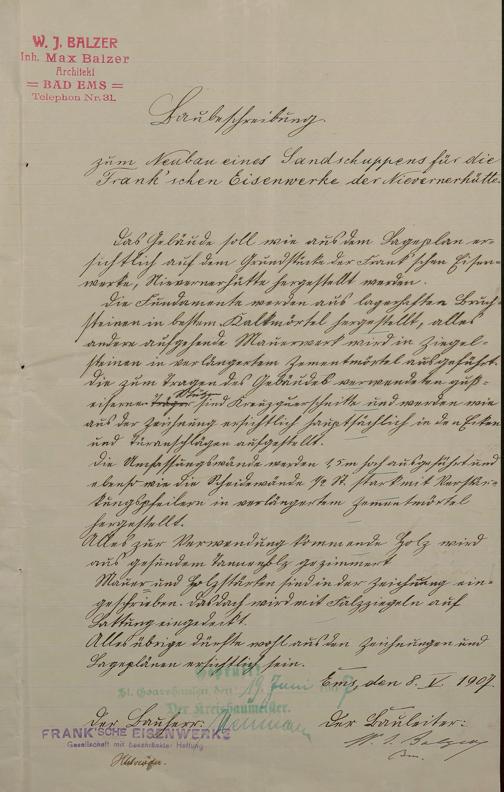 W. J. BALZER
Inh. Max Balzer
Architekt
= BAD EMS =
Telephon Nr. 31.
Baubeschreibung
zum Neubau eines Sandschuppens für die
Frank'schen Eisenwerke der Nievernerhütte.
Das Gebäude soll wie aus dem Lageplan er-
sichtlich auf dem Grundstücke der Frank'schen Eisen-
werke, Nievernerhütte hergestellt werden.
Die Fundamente werden aus lagerhaften Bruch-
steinen in bestem Kalkmörtel hergestellt, alles
andere aufgehende Mauerwerk wird in Ziegel-
steinen in verlängertem Zementmörtel ausgeführt.
Die zum tragen des Gebäudes verwendeten guß-
eisernen Träger Stütz sind Kreuzquerschnitte und werden wie
aus der Zeichnung ersichtlich hauptsächlich in den Ecken
und Türanschlägen aufgestellt.
Die Umfassungswände werden 1,5 m hoch ausgeführt und
ebenso wie die Scheidewände ½ St. stark mit Verstär-
kungspfeilern in verlängertem Zementmörtel
hergestellt.
Alles zur Verwendung kommende Holz wird
aus gesundem Tannenholz gezimmert
Mauer und Holzstärken sind in der Zeichnung ein-
geschrieben. Das Dach wird mit Falzziegeln auf
Lattung eingedeckt.
Alles übrige dürfte wohl aus den Zeichnungen und
Lageplänen ersichtlich sein.
Geprüft
Ems, den 8. V. 1907.
St. Goarshausen, den 19 Juni 1907
Der Kreisbaumeister.
Der Bauherr:
Der Bauleiter:
FRANK'SCHE EISENWERKE
Gesellschaft mit beschränkter Haftung
W. J. Balzer